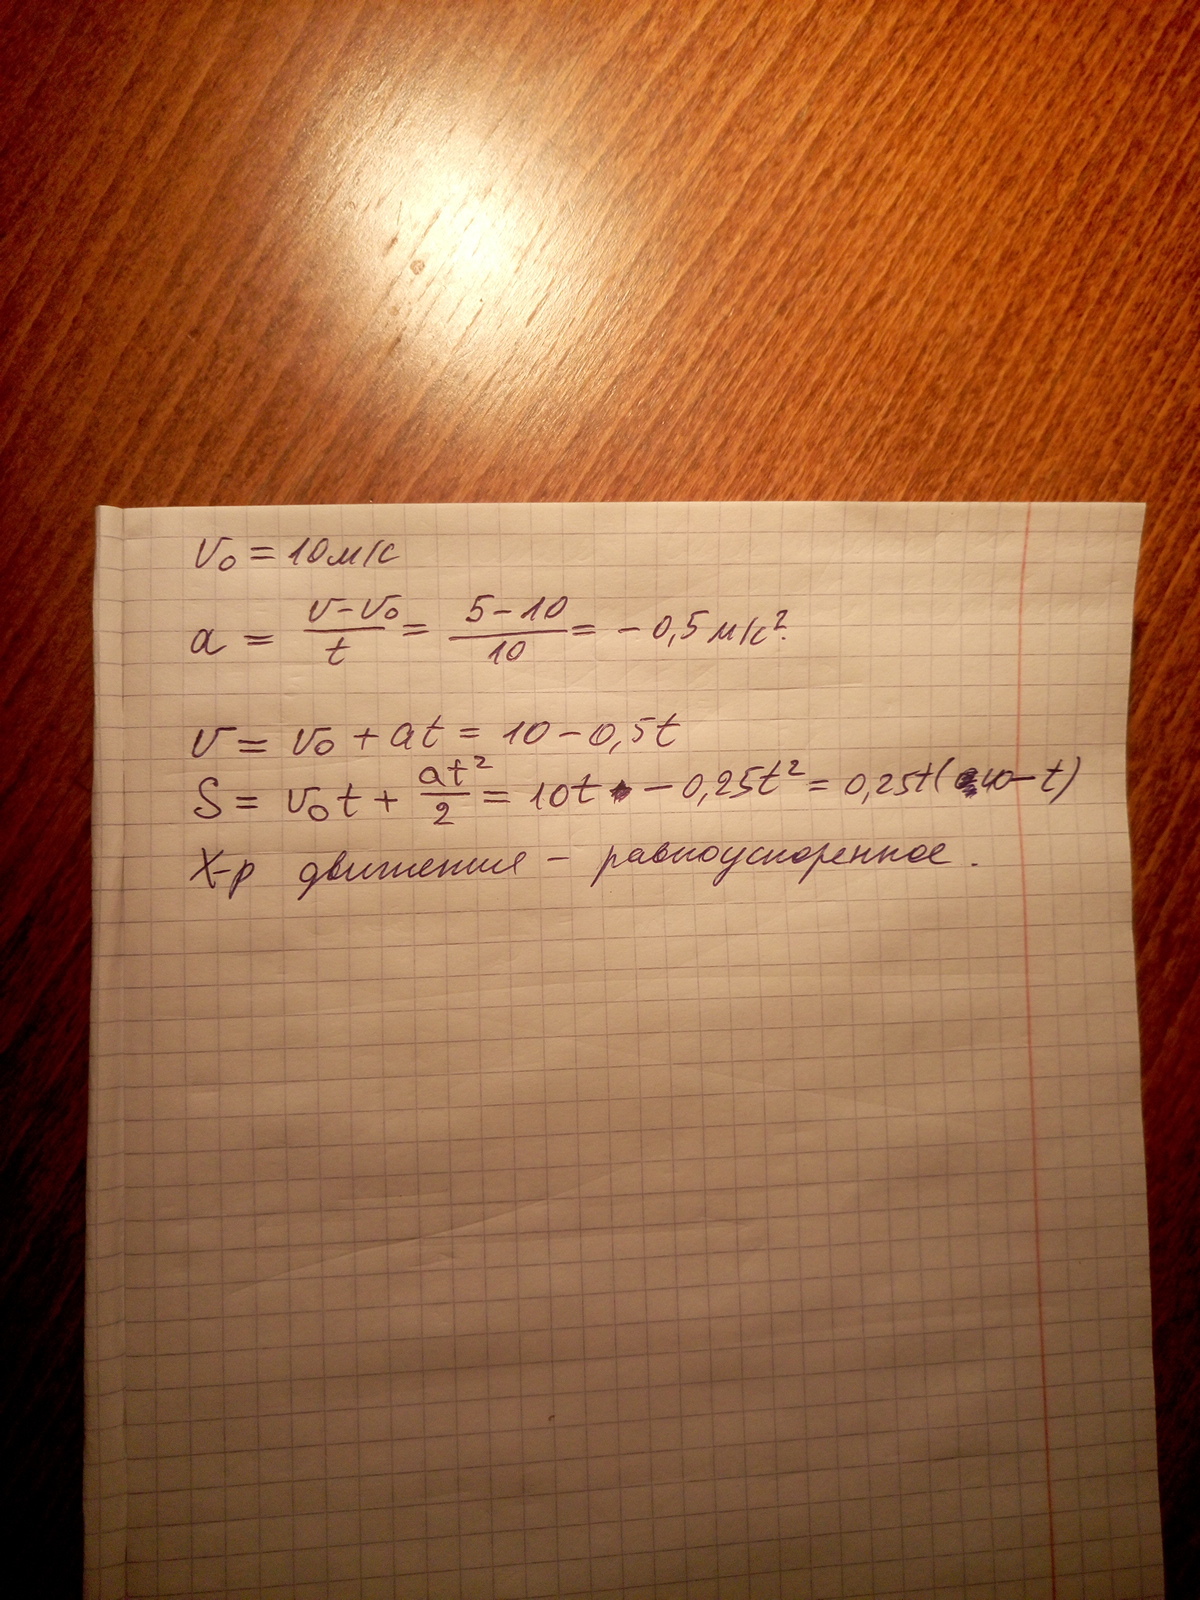 v₀ = 10 м/с
a = (v - v₀)/t = (5 - 10)/10 = - 0,5 м/с².
v = v₀ + at = 10 - 0,5t
S = v₀t + at²/2 = 10t - 0,25t² = 0,25t(40 - t)
Х-р движения - равноускоренное.